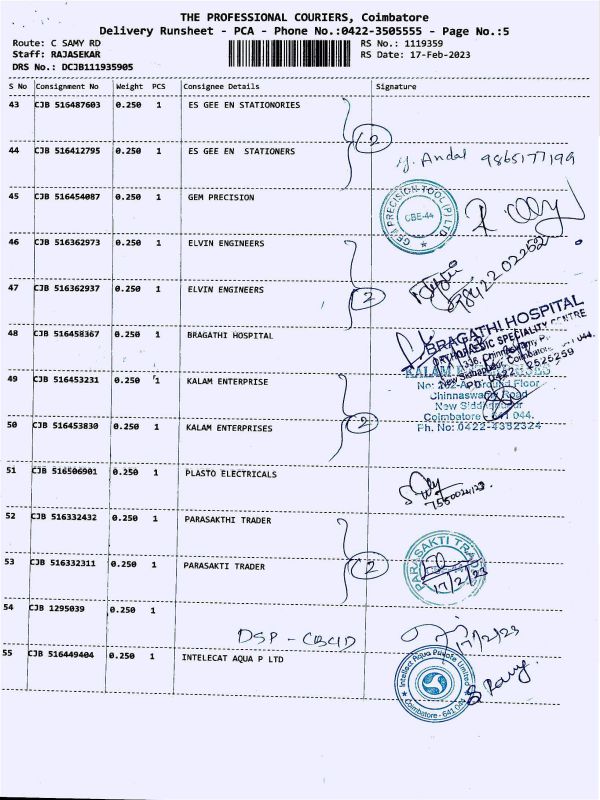 THE PROFESSIONAL COURIERS, Coimbatore
Delivery Runsheet - PCA - Phone No.:0422-3505555 - Page No.:5
Route: C SAMY RD
Staff: RAJASEKAR
DRS No.: DCJB111935905
RS No.: 1119359
RS Date: 17-Feb-2023
S No Consignment No Weight PCS Consignee Details Signature
43 CJB 516487603 0.250 1 ES GEE EN STATIONORIES
2
44 CJB 516412795 0.250 1 ES GEE EN STATIONERS
y. Andal 9865177199
45 CJB 516454087 0.250 1 GEM PRECISION
PRECISION TOOL (P) LTD
CBE-44
46 CJB 516362973 0.250 1 ELVIN ENGINEERS
2
47 CJB 516362937 0.250 1 ELVIN ENGINEERS
48 CJB 516458367 0.250 1 BRAGATHI HOSPITAL
BRAGATHI HOSPITAL
ORTHOPAEDIC SPECIALITY CENTRE
49 CJB 516453231 0.250 1 KALAM ENTERPRISE
2
Chinnaswamy Road
New Siddhapudur
Coimbatore - 641 044.
Ph. No: 0422-4382324
50 CJB 516453830 0.250 1 KALAM ENTERPRISES
51 CJB 516506901 0.250 1 PLASTO ELECTRICALS
52 CJB 516332432 0.250 1 PARASAKTHI TRADER
2
53 CJB 516332311 0.250 1 PARASAKTI TRADER
PARASAKTI
17/2/23
54 CJB 1295039 0.250 1
DSP - CBCID
17/2/23
55 CJB 516449404 0.250 1 INTELECAT AQUA P LTD
Intellect Aqua Private Limited
Coimbatore - 641 044